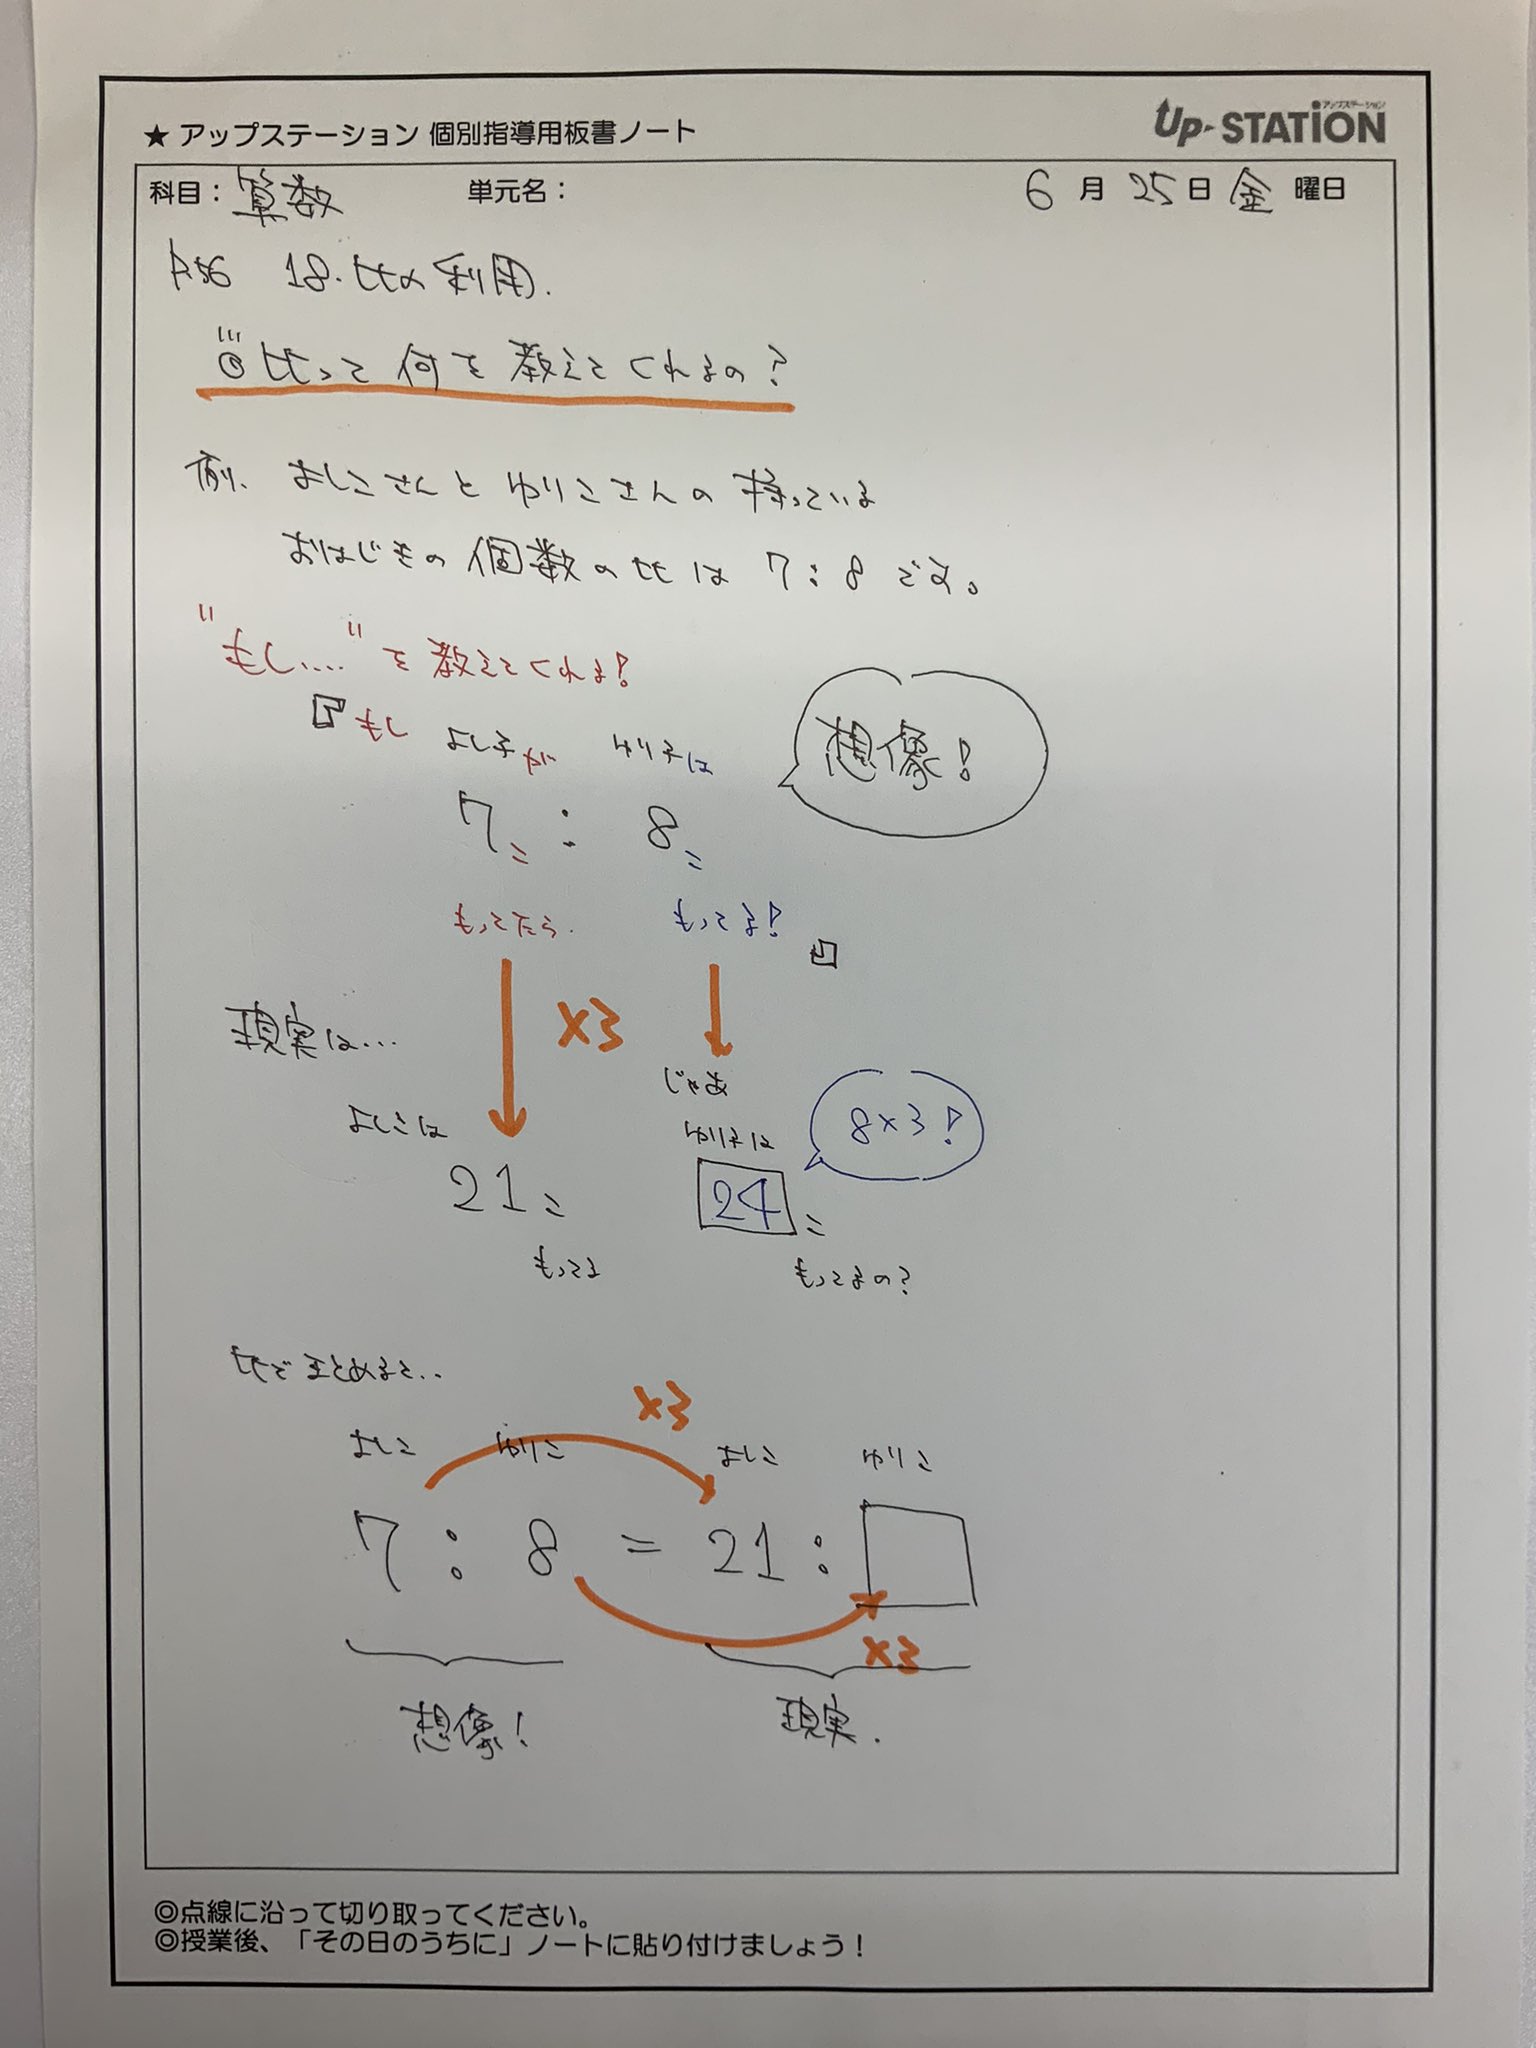 ★ アップステーション 個別指導用板書ノート
アップステーション
Up-STATION
科目：算数 単元名： 6月25日金曜日
P.56 18.比の利用.
◎比って何を教えてくれるの？
例、よしこさんとゆりこさんの持っている
おはじきの個数の比は 7：8 です。
"もし...."を教えてくれる！
『もし よし子が ゆり子は
想像！
7こ ： 8こ
もってたら. もってる！』
×3
現実は...
じゃあ
よしこは ゆり子は
8×3！
21こ 24こ
もってる もってるの？
比でまとめると...
×3
よしこ ゆりこ よしこ ゆりこ
7 ： 8 = 21 ： □
×3
想像！ 現実.
◎点線に沿って切り取ってください。
◎授業後、「その日のうちに」ノートに貼り付けましょう！